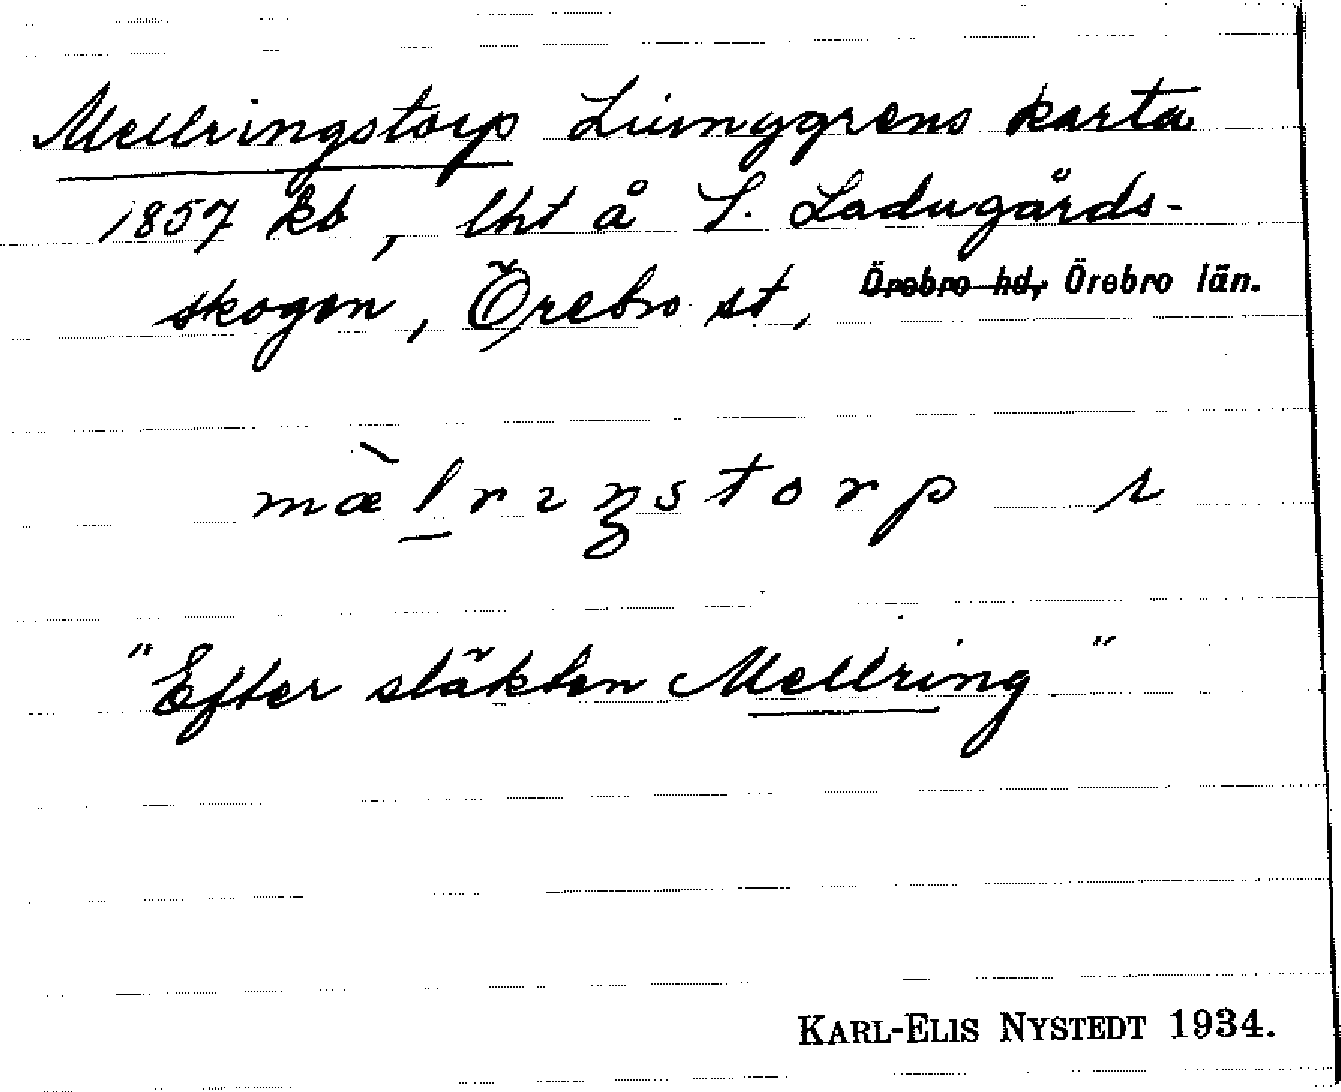 Mellringstorp Ljunggrens karta
1857 kb, lht å S. Ladugårds-
skogen, Örebro st, Örebro hd, Örebro län.
mæ̀lrıŋstorp s
"Efter släkten Mellring"
KARL-ELIS NYSTEDT 1934.